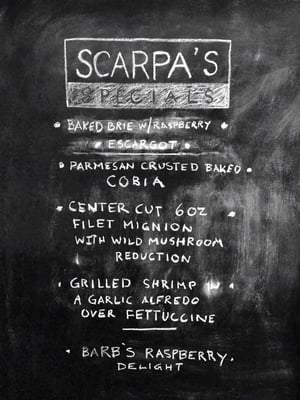 SCARPA'S
SPECIALS
• BAKED BRIE W/RASPBERRY •
• ESCARGOT •
• PARMESAN CRUSTED BAKED •
COBIA
• CENTER CUT 6OZ •
FILET MIGNION
WITH WILD MUSHROOM
REDUCTION
• GRILLED SHRIMP IN •
A GARLIC ALFREDO
OVER FETTUCCINE
• BARB'S RASPBERRY •
DELIGHT